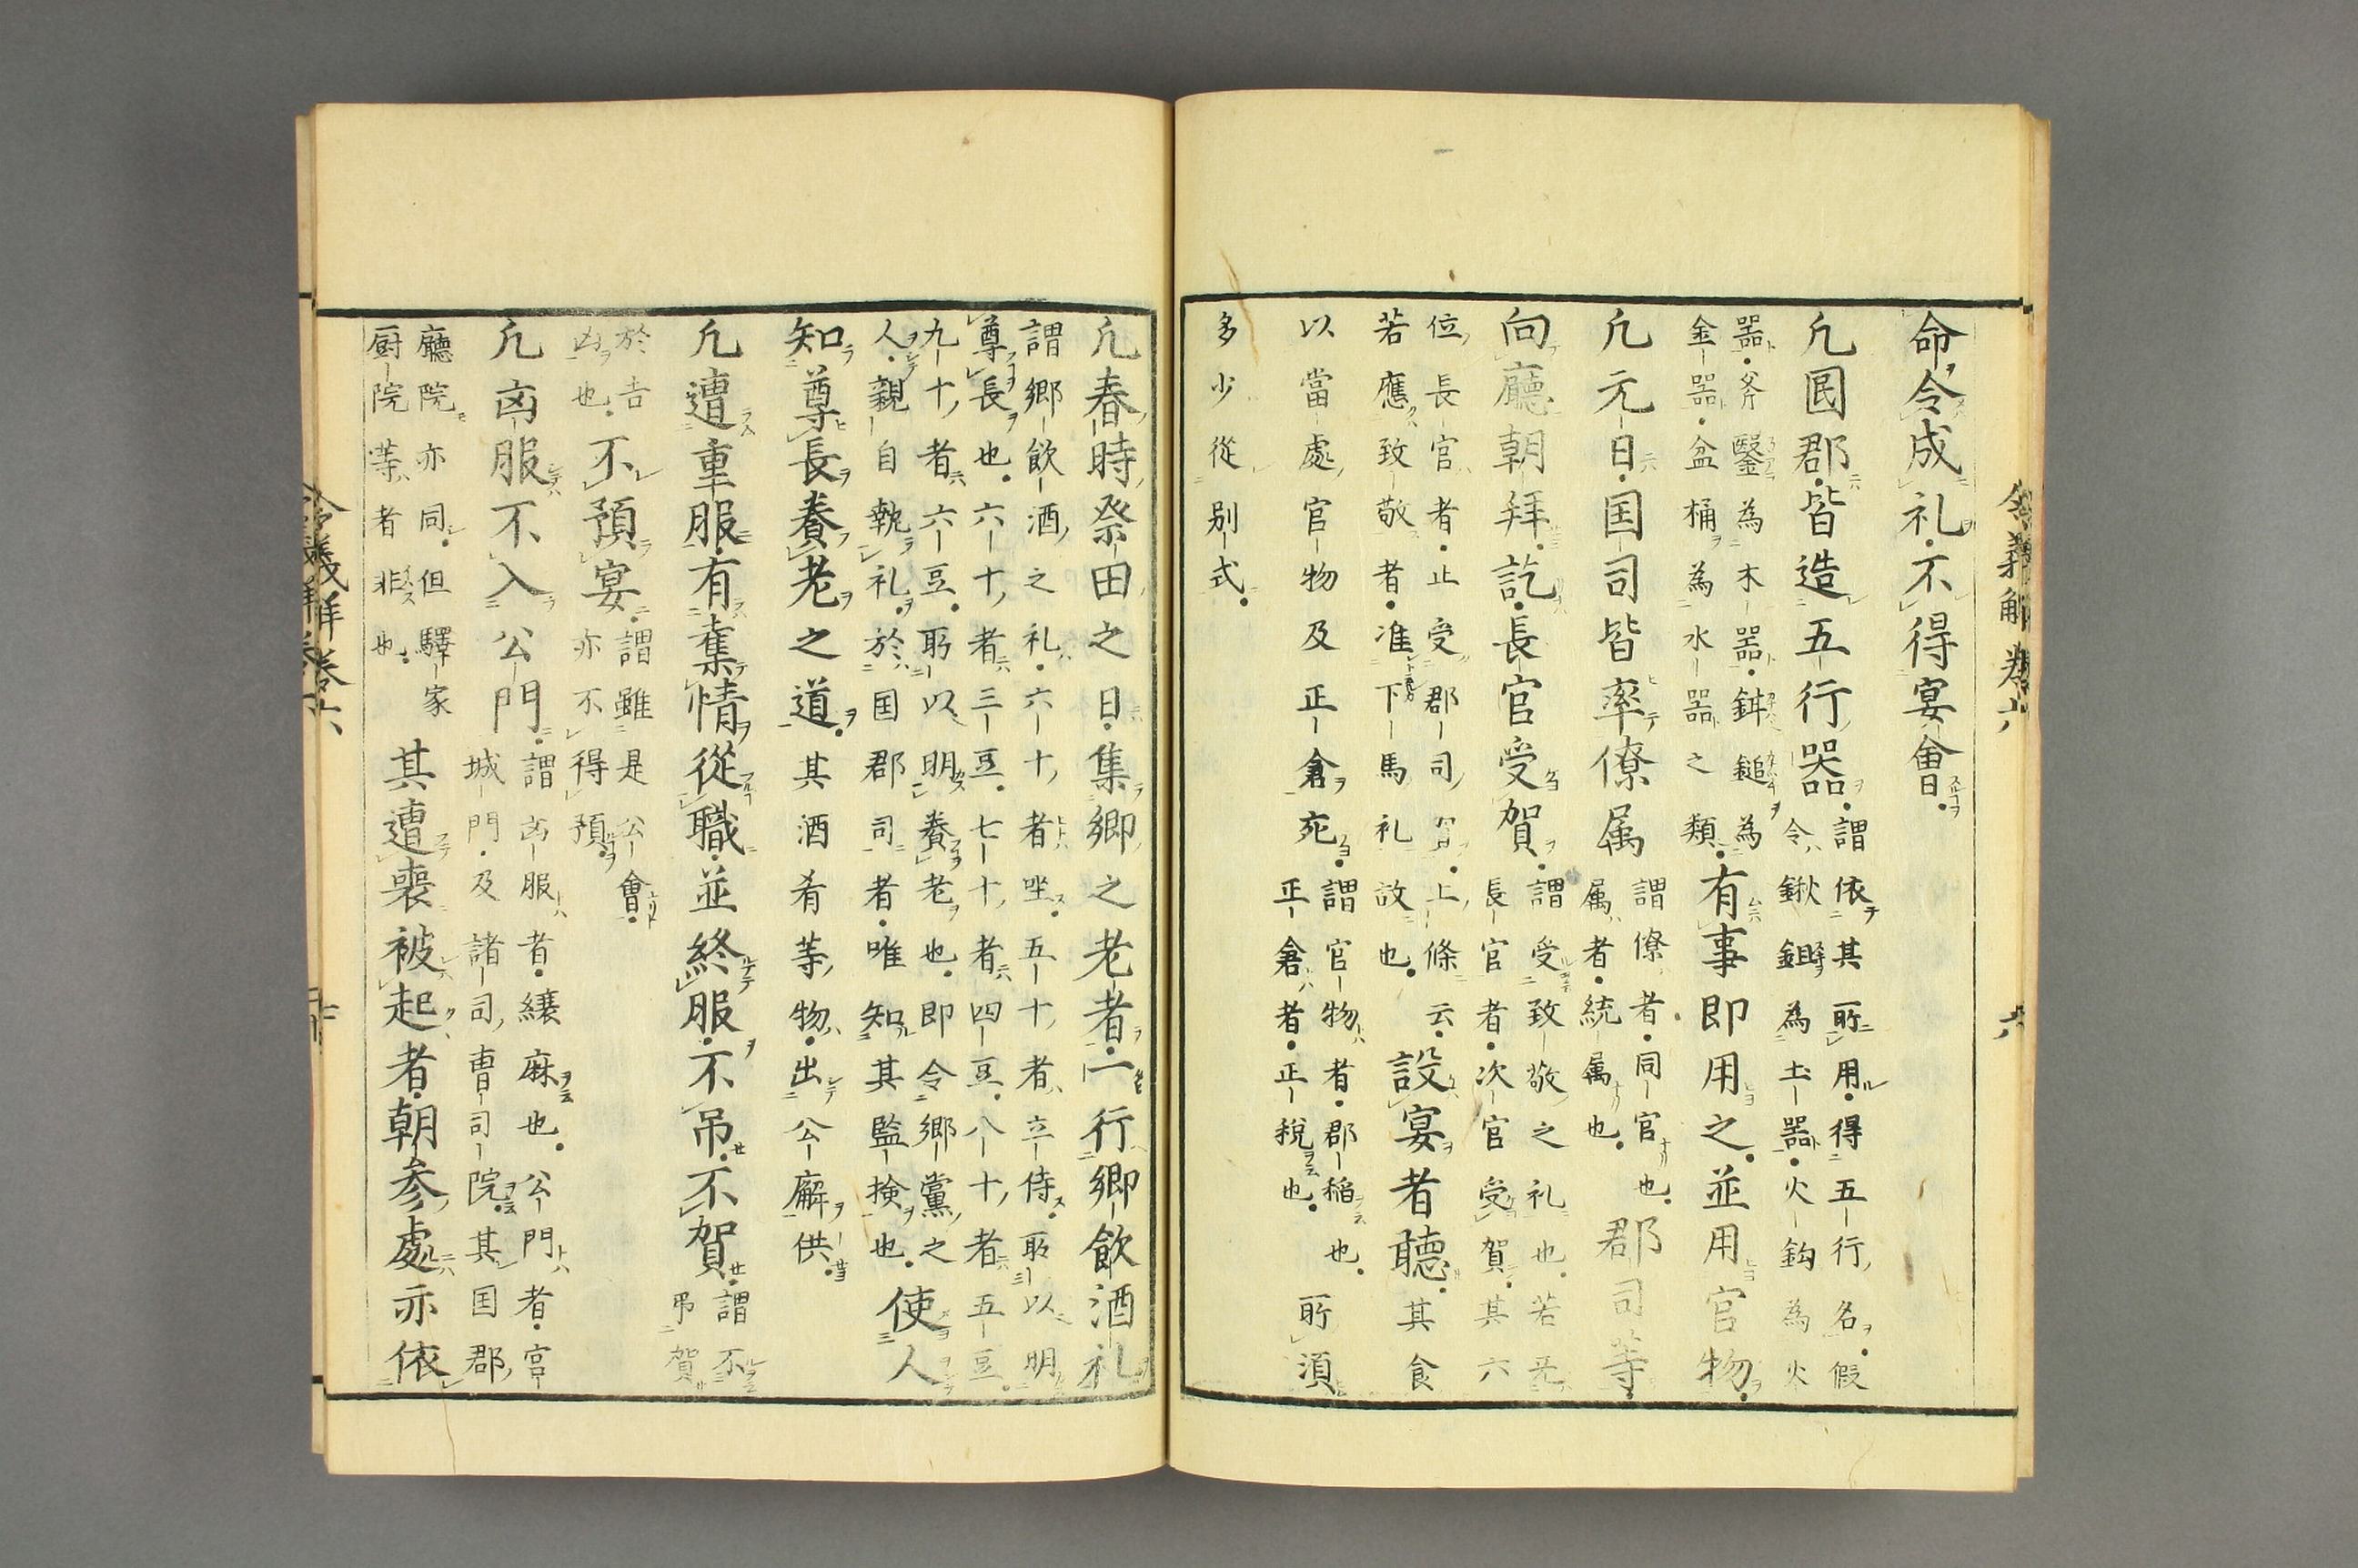 令義解卷六
六
命令成礼不得宴會
凢圀郡皆造五行器謂依其所用得五行名假
令鍬鉏為土器火鈎為火
器斧鑿為木器鉡鎚為
金器盆桶為水器之類有事即用之並用官物
凢元日国司皆率僚属謂僚者同官也
属者統属也郡司等
向廳朝拜訖長官受賀謂受致敬之礼也若无
長官者次官受賀其六
位長官者止受郡司賀上條云
若應致敬者准下馬礼故也設宴者聴其食
以當處官物及正倉宛謂官物者郡稲也
正倉者正税也所須
多少從别式
凢春時祭田之日集郷之老者一行郷飲酒礼
謂郷飲酒之礼六十者坐五十者立侍所以明
尊長也六十者三豆七十者四豆八十者五豆
九十者六豆所以明養老也即令郷黨之
人親自執礼於国郡司者唯知其監検也使人
知尊長養老之道其酒肴等物出公廨供
凢遭重服有奪情從職並終服不吊不賀謂不
吊賀
於吉
凶也不預宴謂雖是公會
亦不得預
凢凶服不入公門謂凶服者縗麻也公門者宮
城門及諸司曹司院其国郡
廳院亦同但驛家
厨院等者非也其遭喪被起者朝参處亦依
令義解卷六